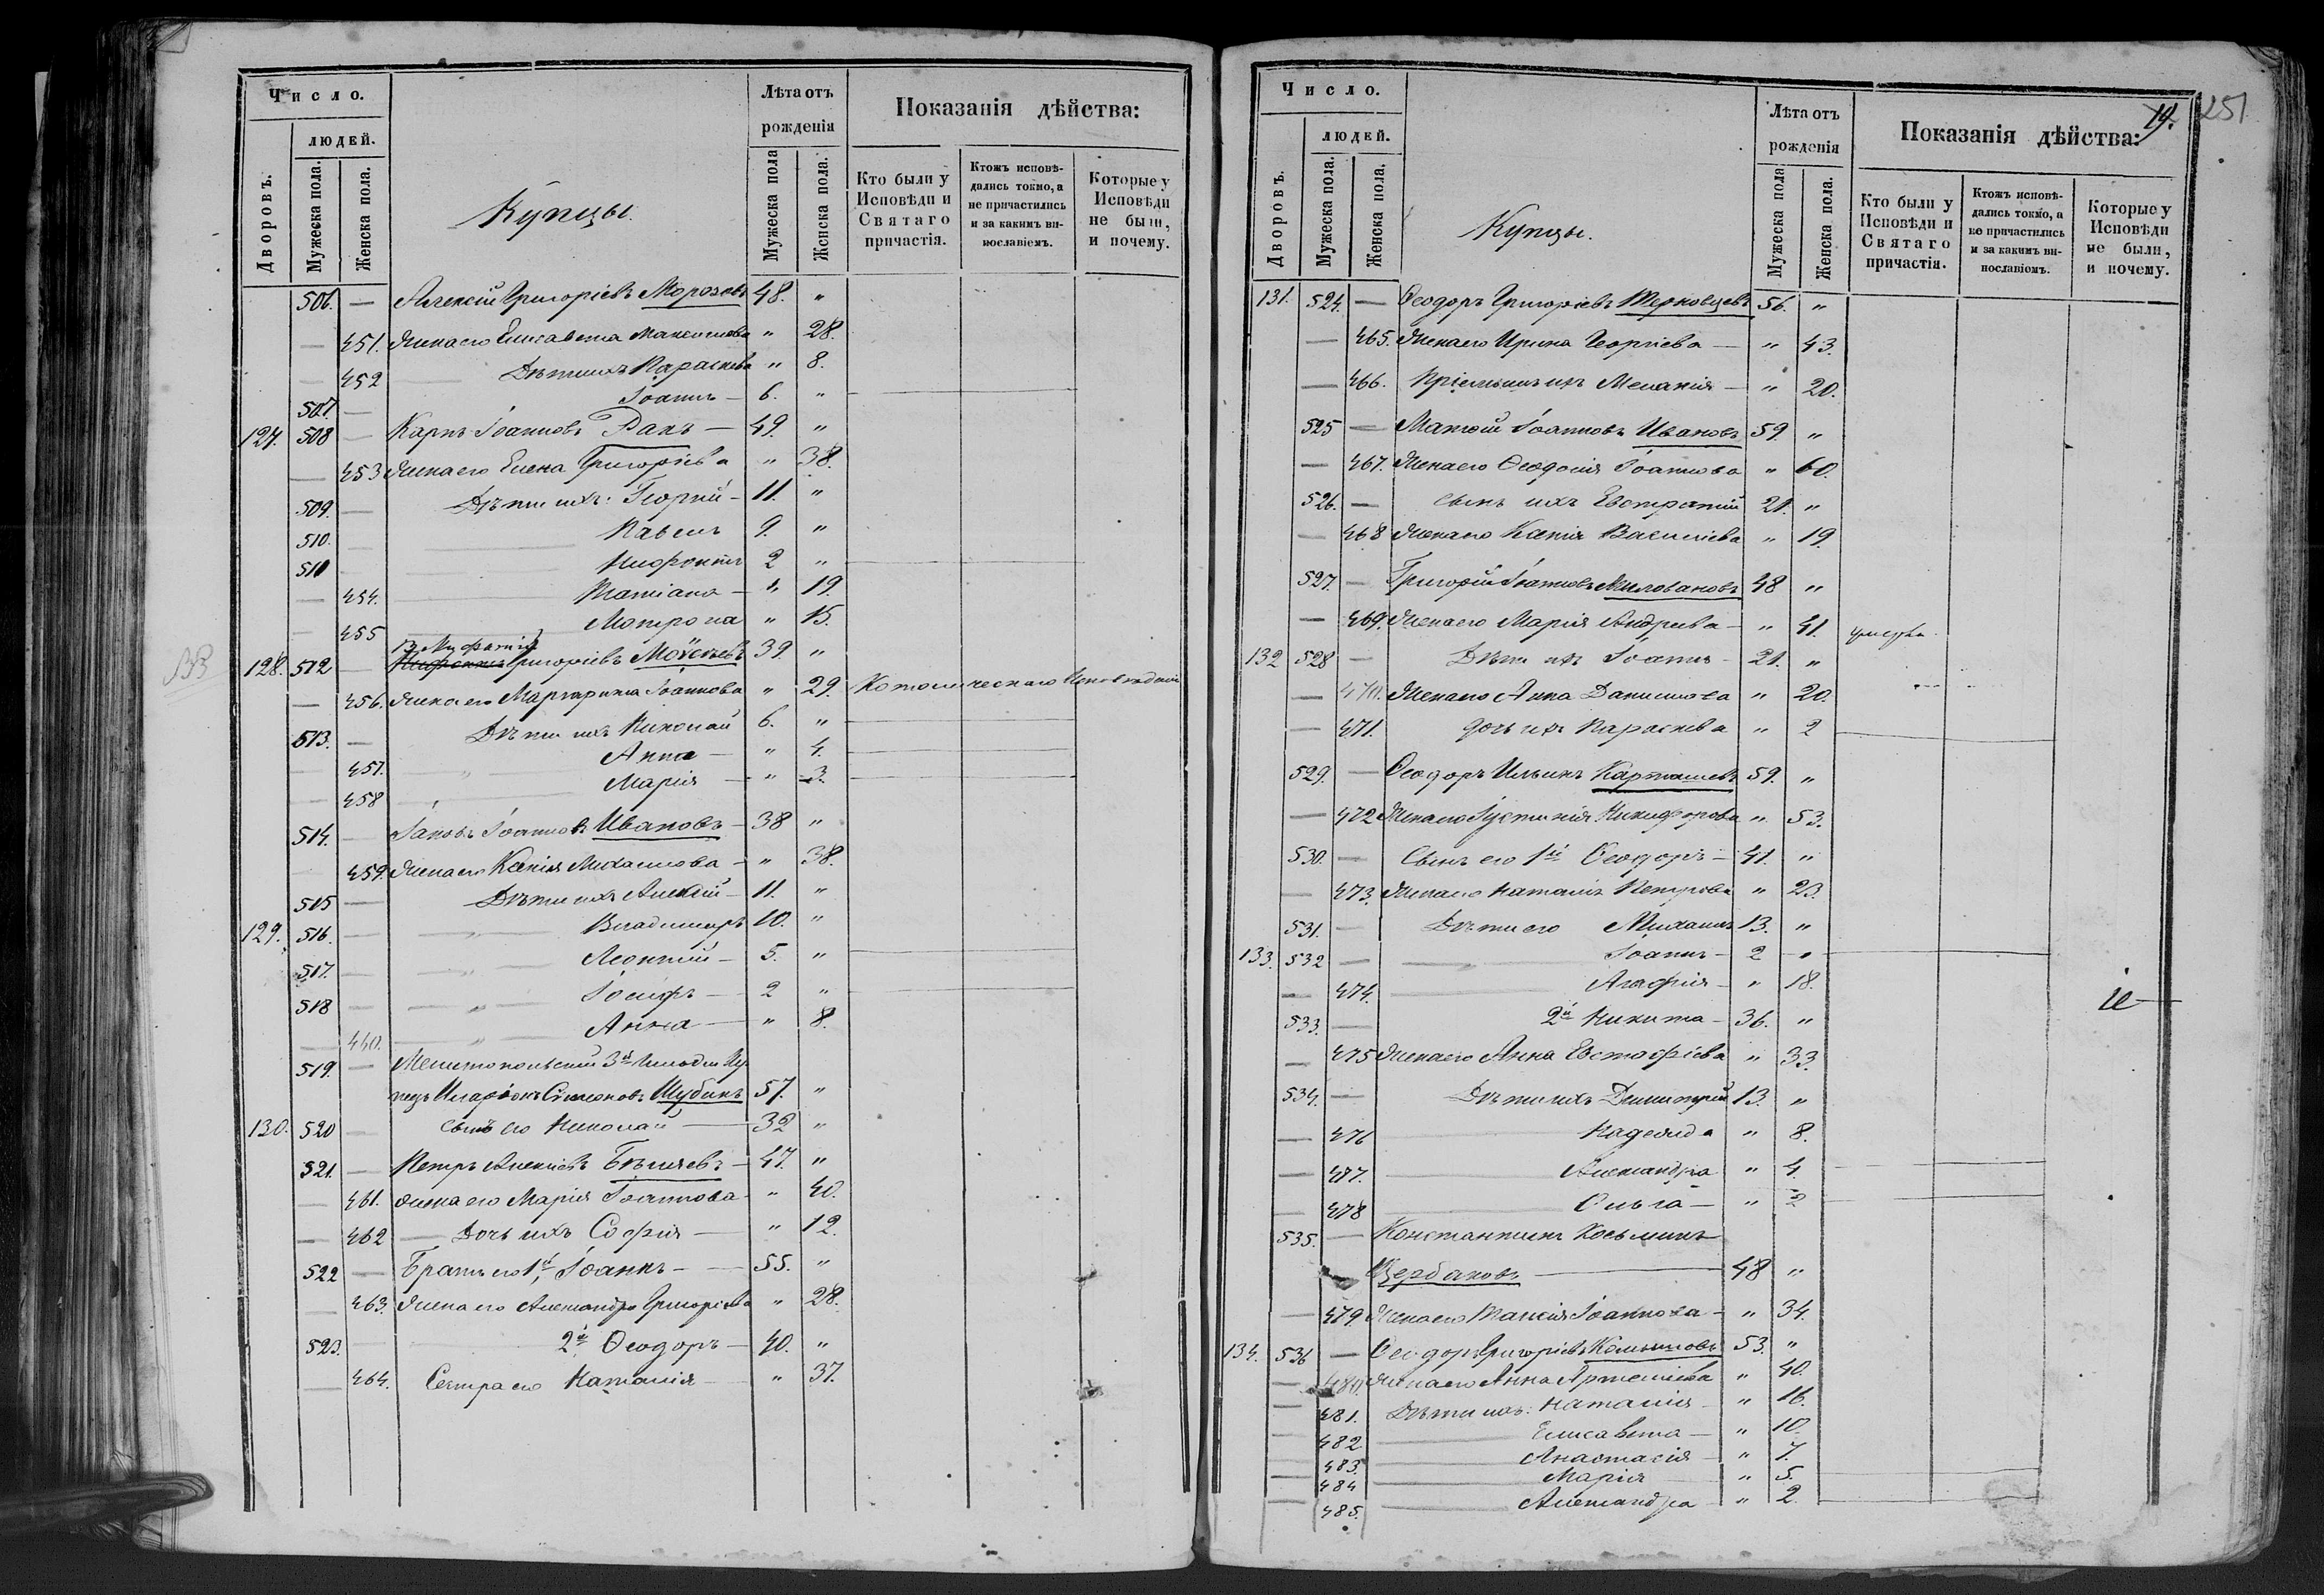 Число.
людей.
Дворовъ.
Мужеска пола.
Женска пола.
Купцы.
Лѣта отъ рожденія
Мужеска пола
Женска пола.
Показанія дѣйства:
Кто были у Исповѣди и Святаго причастія.
Ктожъ исповѣдались токмо, а не причастились и за какимъ винославіемъ.
Которые у Исповѣди не были, и почему.
506. — Алексій Григоріевъ Морозовъ 48. "
— 451. Жена его Елисавета Максимова " 28.
— 452 Дѣти ихъ Параскева " 8.
507. — Іоаннъ — 6. "
127. 508 — Карпъ Іоанновъ Ракъ — 49. "
— 453 Жена его Елена Григоріева " 38.
509. — Дѣти ихъ: Георгій — 11. "
510. Павелъ 9. "
511 Нифонтъ 2 "
— 454. Татіана — " 19.
— 455 Матрона " 15.
128. 512 — Григоріевъ 39. "
— 456. Жена его Маргарита Іоаннова " 29. Католическаго Исповѣданія
513. — Дѣти ихъ Николай 6. "
— 457. " Анна — " 4.
— 458 " Марія — " 3.
514. — Іаковъ Іоанновъ Ивановъ — 38 "
459. Жена его Ксенія Михаилова — " 38.
515 — Дѣти ихъ Алексій — 11. "
129. 516. — " Владимиръ 10. "
517. — " Леонтій — 5. "
518 — " Іосифъ — 2 "
— 460. " Анна — " 8.
519. — Мелитопольскій 3й Гильдіи Ку
пецъ Иларіонъ Симеоновъ Шубинъ 57. "
130. 520 — сынъ его Николай — 32 "
521. — Петръ Алексіевъ Бѣляевъ — 47. "
— 461. Жена его Марія Іоаннова — " 40.
— 462 — Дочь ихъ Софія — " 12.
522 — Братъ его 1й, Іоаннъ — 55. "
— 463. Жена его Александра Григоріева " 28.
523. — 2й Ѳеодоръ — 40. "
— 464. Сестра его Наталія — " 37.
19. 251
Число.
людей.
Дворовъ.
Мужеска пола.
Женска пола.
Купцы.
Лѣта отъ рожденія
Мужеска пола
Женска пола.
Показанія дѣйства:
Кто были у Исповѣди и Святаго причастія.
Ктожъ исповѣдались токмо, а не причастились и за какимъ винославіемъ.
Которые у Исповѣди не были, и почему.
131. 524. — Ѳеодоръ Григоріевъ 56. "
— 465. Жена его Ирина Георгіева — " 43.
— 466. Мелания — " 20.
525 — Матѳій Іоанновъ Ивановъ 59. "
— 467. Жена его Ѳеодосія Іоаннова " 60.
526. — сынъ ихъ Евстратій 21. "
— 468 Жена его Ксенія Василіева " 19.
527. — Григорій Іоанновъ Миловановъ 48 "
— 469. Жена его Марія Андреева — " 41.
132 528 — Дѣти ихъ Іоаннъ — 21. "
— 470. Жена его Анна Даниилова " 20.
— 471. дочь ихъ Параскева " 2
529. — Ѳеодоръ Ильинъ Карташевъ 59. "
— 472 Жена его Іустинія Никифорова " 53.
530. — Сынъ его 1й Ѳеодоръ — 41. "
— 473. Жена его Наталія Петрова " 23.
531. — Дѣти его Михаилъ 13. "
133. 532 — Іоаннъ — 2 "
— 474. Агафія — " 18.
533. — 2й Никита — 36. "
— 475 Жена его Анна Евстафіева " 33.
534. — Дѣти ихъ Димитрій 13. "
— 476 Надежда " 8.
— 477. Александра " 4.
— 478 Ольга — " 2
535. — Константинъ Косьминъ
Щербаковъ — 48 "
— 479. Жена его Таисія Іоаннова — " 34.
134. 536 — Ѳеодоръ Григоріевъ 53. "
— 480. Жена его Анна Артеміева " 40.
— 481. Дѣти ихъ: Наталія — " 16.
— 482 Елисавета — " 10.
— 483. Анастасія " 7.
— 484 Марія " 5.
— 485. Александра " 2.